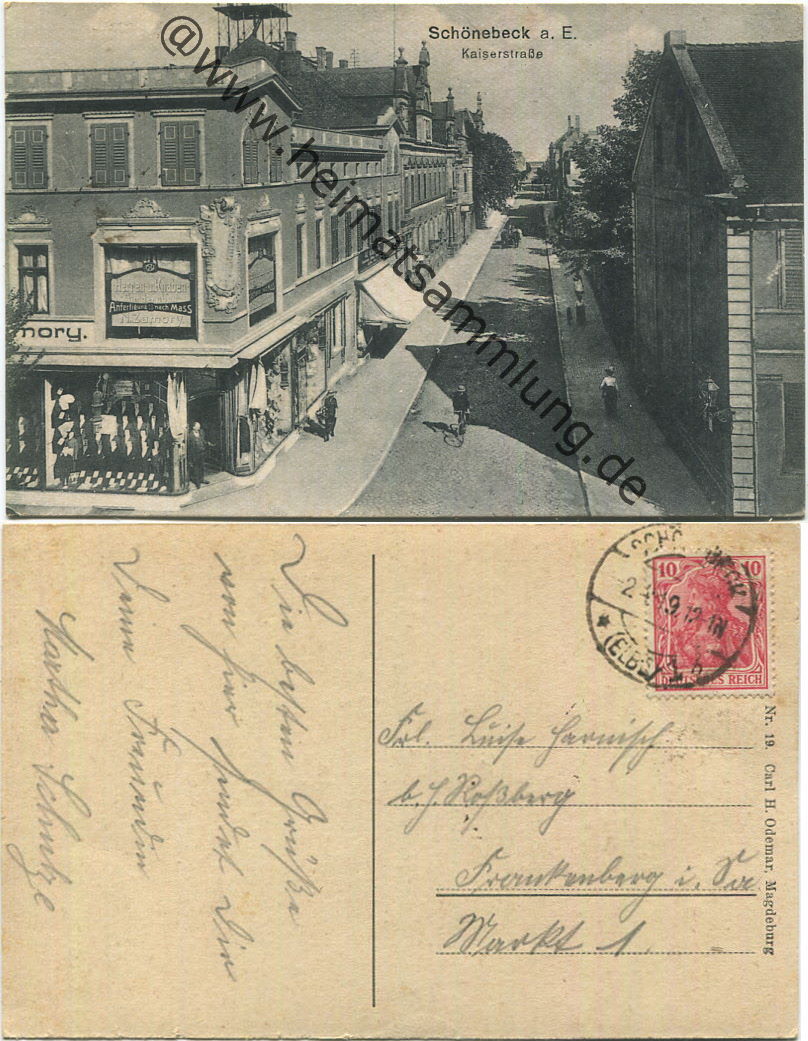 Schönebeck a. E.
Kaiserstraße
@www.heimatsammlung.de
Herren u. Knaben
Anfertigung nach Mass
N. Zamory.
mory.
Die besten Grüße
von hier sendet Dir
Deine Freundin
Martha Schulze
10 10
DEUTSCHES REICH
(ELBE)
Frl. Luise Harnisch
b. H. Roßberg
Frankenberg i. Sa
Markt 1.
Nr. 19. Carl H. Odemar, Magdeburg